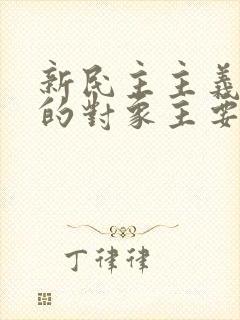 新民主主義
的對象主要
丁律律